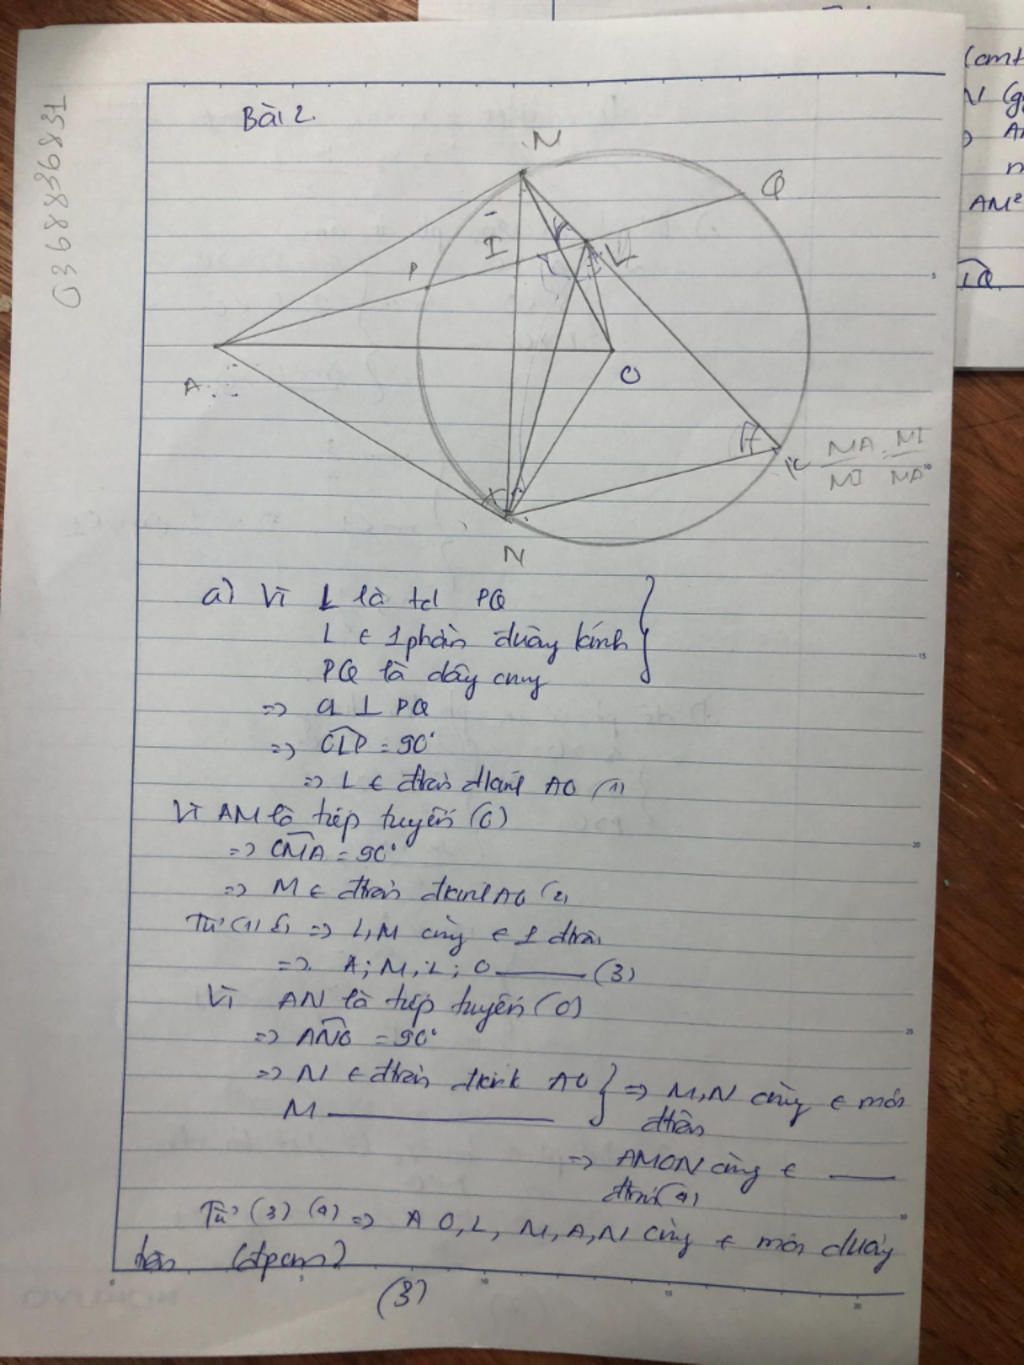 Bài 2.
0368836831
N
Q
I
P
L
A
O
K
MA MI
MI MA
N
a) Vì L là td PQ
L ∈ 1 phần đường kính
PQ là dây cung
=> OL ⊥ PQ
=> OLP = 90°
=> L ∈ đtròn đkính AO (1)
Vì AM là tiếp tuyến (O)
=> OMA = 90°
=> M ∈ đtròn đkính AO (2)
Từ (1) => L, M cùng ∈ 1 đtròn
=> A; M; L; O (3)
Vì AN là tiếp tuyến (O)
=> ANO = 90°
=> N ∈ đtròn đkính AO } => M, N cùng ∈ một
M đtròn
=> AMON cùng ∈
đtròn (4)
Từ (3) (4) => A O, L, M, A, N cùng ∈ một đường
tròn (đpcm)
(3)
(cmt
N (g
A
AM²
LQ